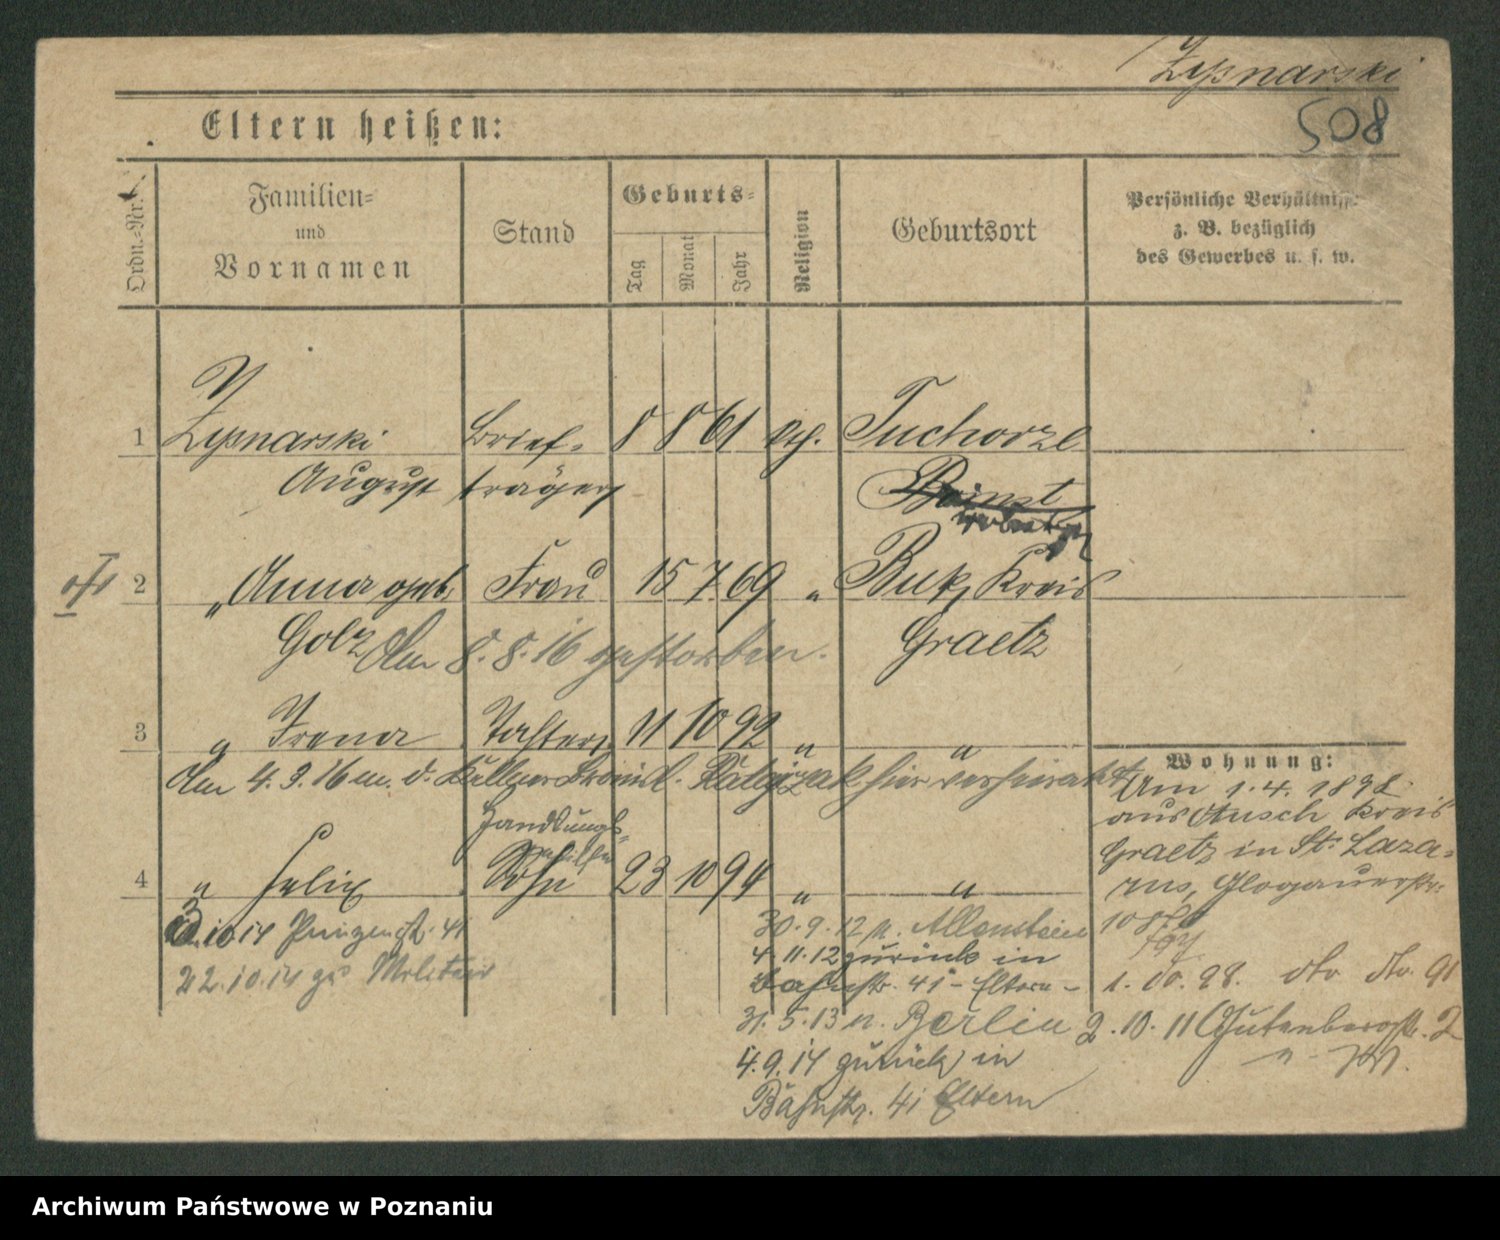 Zypnarski
508
Eltern heißen:
Ordn.-Nr.
Familien-
und
Vornamen
Stand
Geburts-
Tag
Monat
Jahr
Religion
Geburtsort
Persönliche Verhältnisse
z. B. bezüglich
des Gewerbes u. s. w.
1 Zypnarski Brief- 8 8 61 Tuchorze
August träger
2 " Anna geb. Frau 15 7 69 " Buk, Kreis
Golz Am 8.8.16 gestorben. Graetz
3 " Irena Tochter 11 10 92 " "
Am 4.3.16 m. d. Kellner hier verheiratet
Handlungs-
gehilfe
4 " Felix Sohn 23 10 94 " "
Wohnung:
Am 1.4.1898
aus Kreis
Graetz in St. Laza-
rus, Glogauerstr.
108
1.10.98. dto dto. 91
2.10.11 Gutenbergstr. 2
10.14 41
22.10.14 zu Militär
30.9.12 n. Allenstein
4.11.12 zurück in
Bahnstr. 41 - Eltern -
31.5.13 n. Berlin
4.9.14 zurück in
Bahnstr. 41 Eltern
Archiwum Państwowe w Poznaniu